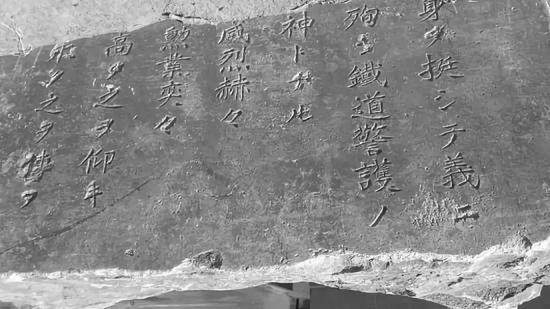 身ヲ挺シテ義ニ
殉ヲ鐵道警護ノ
神トナル
威烈赫々
勲業奕々
高ク之ヲ仰キ
之ヲ傳フ